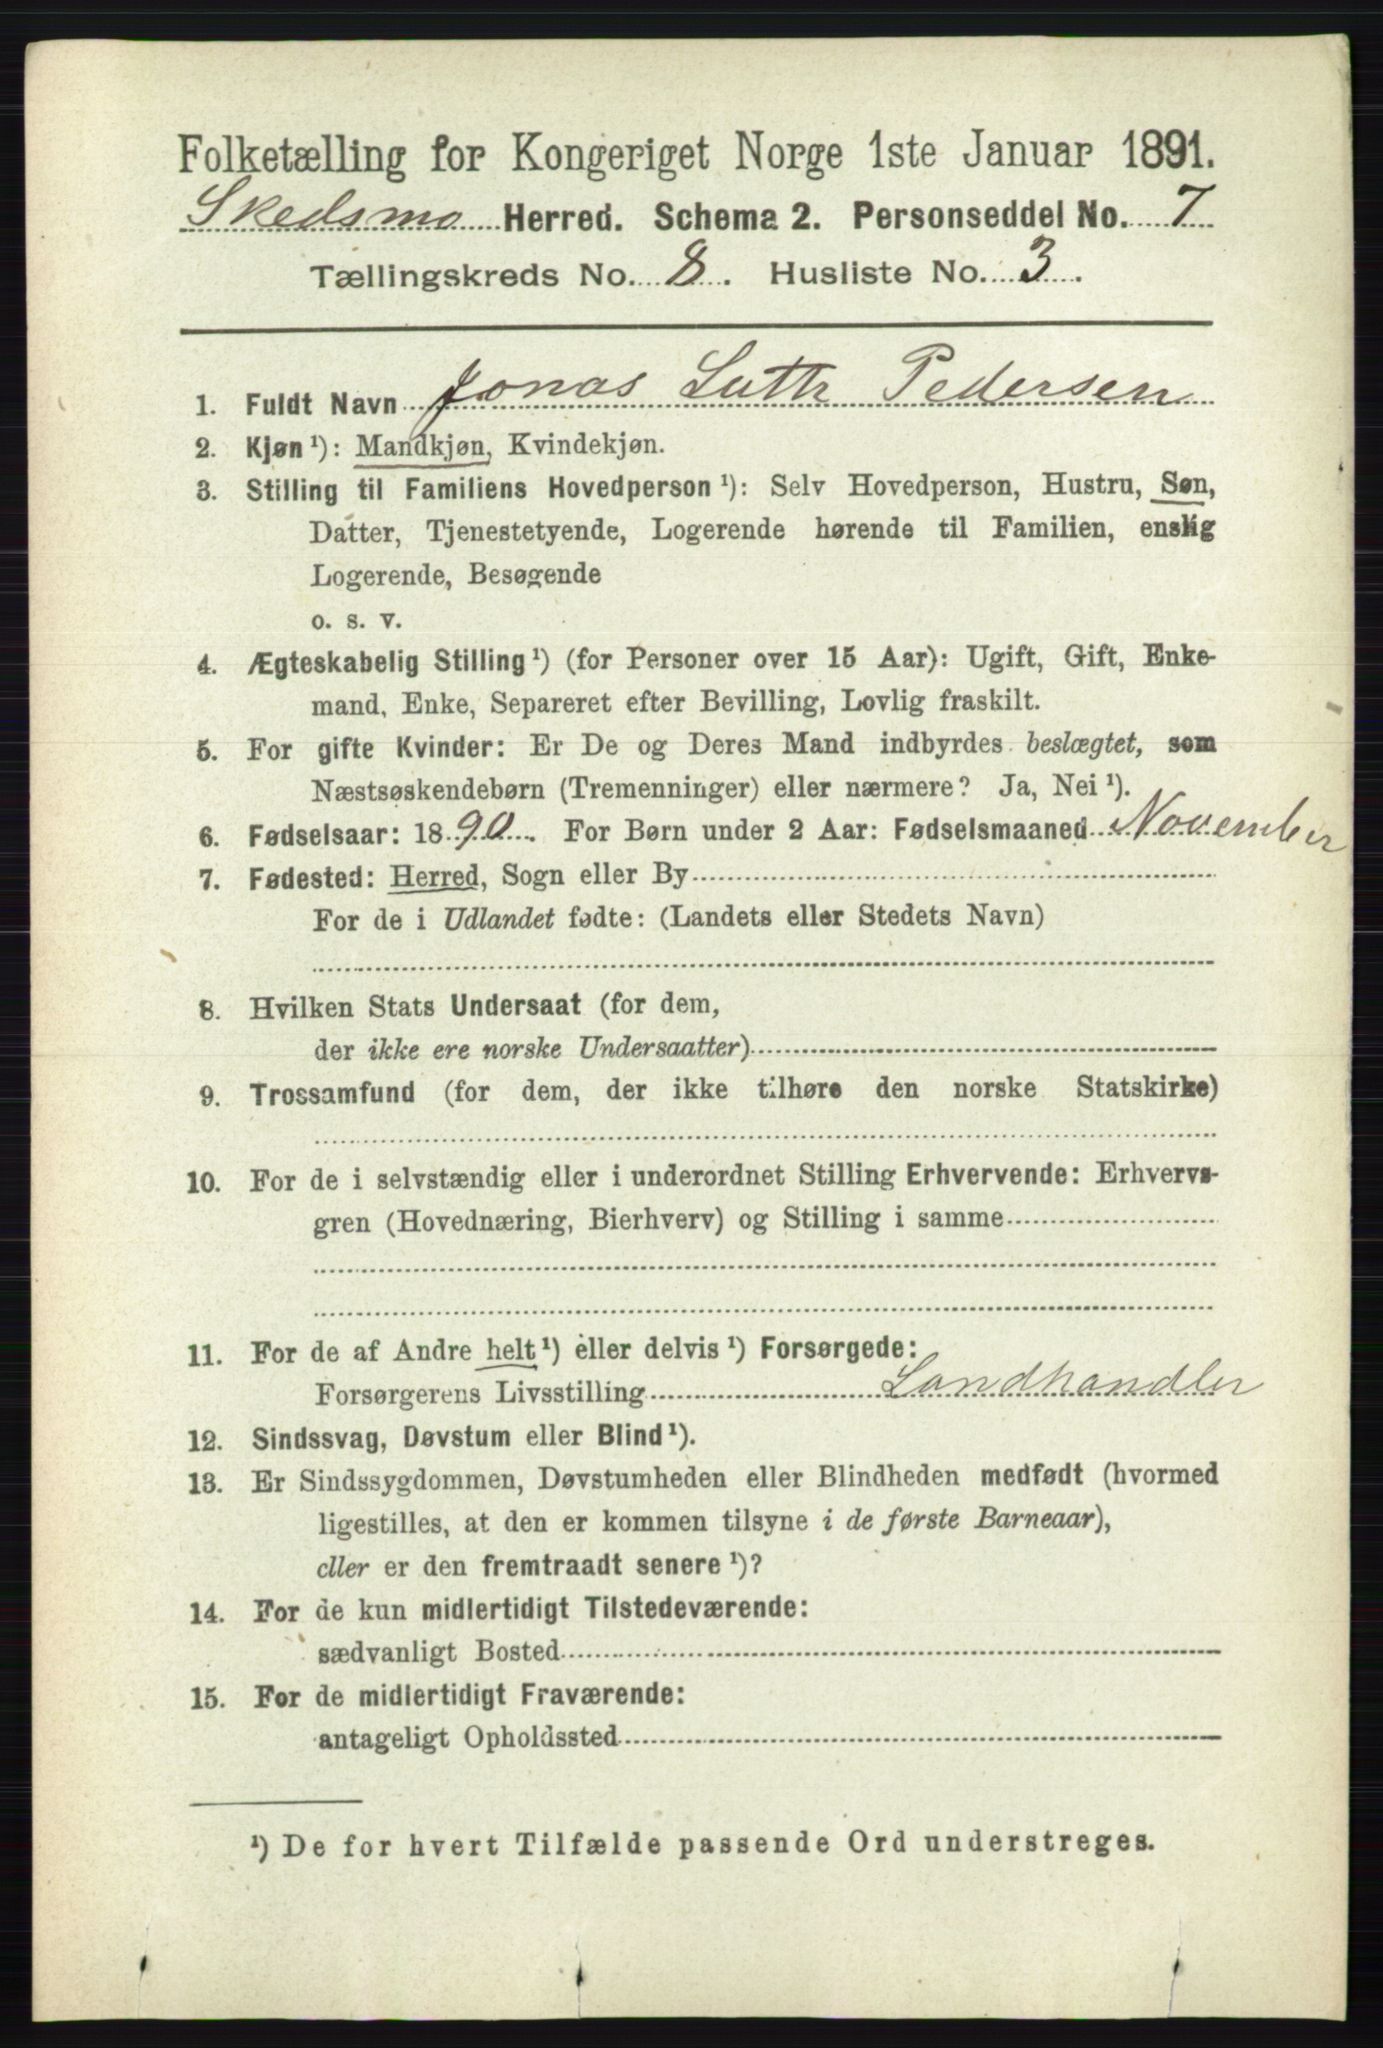 Folketælling for Kongeriget Norge 1ste Januar 1891.
Skedsmo Herred. Schema 2. Personseddel No. 7
Tællingskreds No. 8. Husliste No. 3.
1. Fuldt Navn Jonas Luth Pedersen
2. Kjøn ¹): Mandkjøn, Kvindekjøn.
3. Stilling til Familiens Hovedperson ¹): Selv Hovedperson, Hustru, Søn,
Datter, Tjenestetyende, Logerende hørende til Familien, enslig
Logerende, Besøgende
o. s. v.
4. Ægteskabelig Stilling ¹) (for Personer over 15 Aar): Ugift, Gift, Enke-
mand, Enke, Separeret efter Bevilling, Lovlig fraskilt.
5. For gifte Kvinder: Er De og Deres Mand indbyrdes beslægtet, som
Næstsøskendebørn (Tremenninger) eller nærmere? Ja, Nei ¹).
6. Fødselsaar: 1890. For Børn under 2 Aar: Fødselsmaaned November
7. Fødested: Herred, Sogn eller By
For de i Udlandet fødte: (Landets eller Stedets Navn)
8. Hvilken Stats Undersaat (for dem,
der ikke ere norske Undersaatter)
9. Trossamfund (for dem, der ikke tilhøre den norske Statskirke)
10. For de i selvstændig eller i underordnet Stilling Erhvervende: Erhvervs-
gren (Hovednæring, Bierhverv) og Stilling i samme
11. For de af Andre helt ¹) eller delvis ¹) Forsørgede:
Forsørgerens Livsstilling Landhandler
12. Sindssvag, Døvstum eller Blind ¹).
13. Er Sindssygdommen, Døvstumheden eller Blindheden medfødt (hvormed
ligestilles, at den er kommen tilsyne i de første Barneaar),
eller er den fremtraadt senere ¹)?
14. For de kun midlertidigt Tilstedeværende:
sædvanligt Bosted
15. For de midlertidigt Fraværende:
antageligt Opholdssted
¹) De for hvert Tilfælde passende Ord understreges.